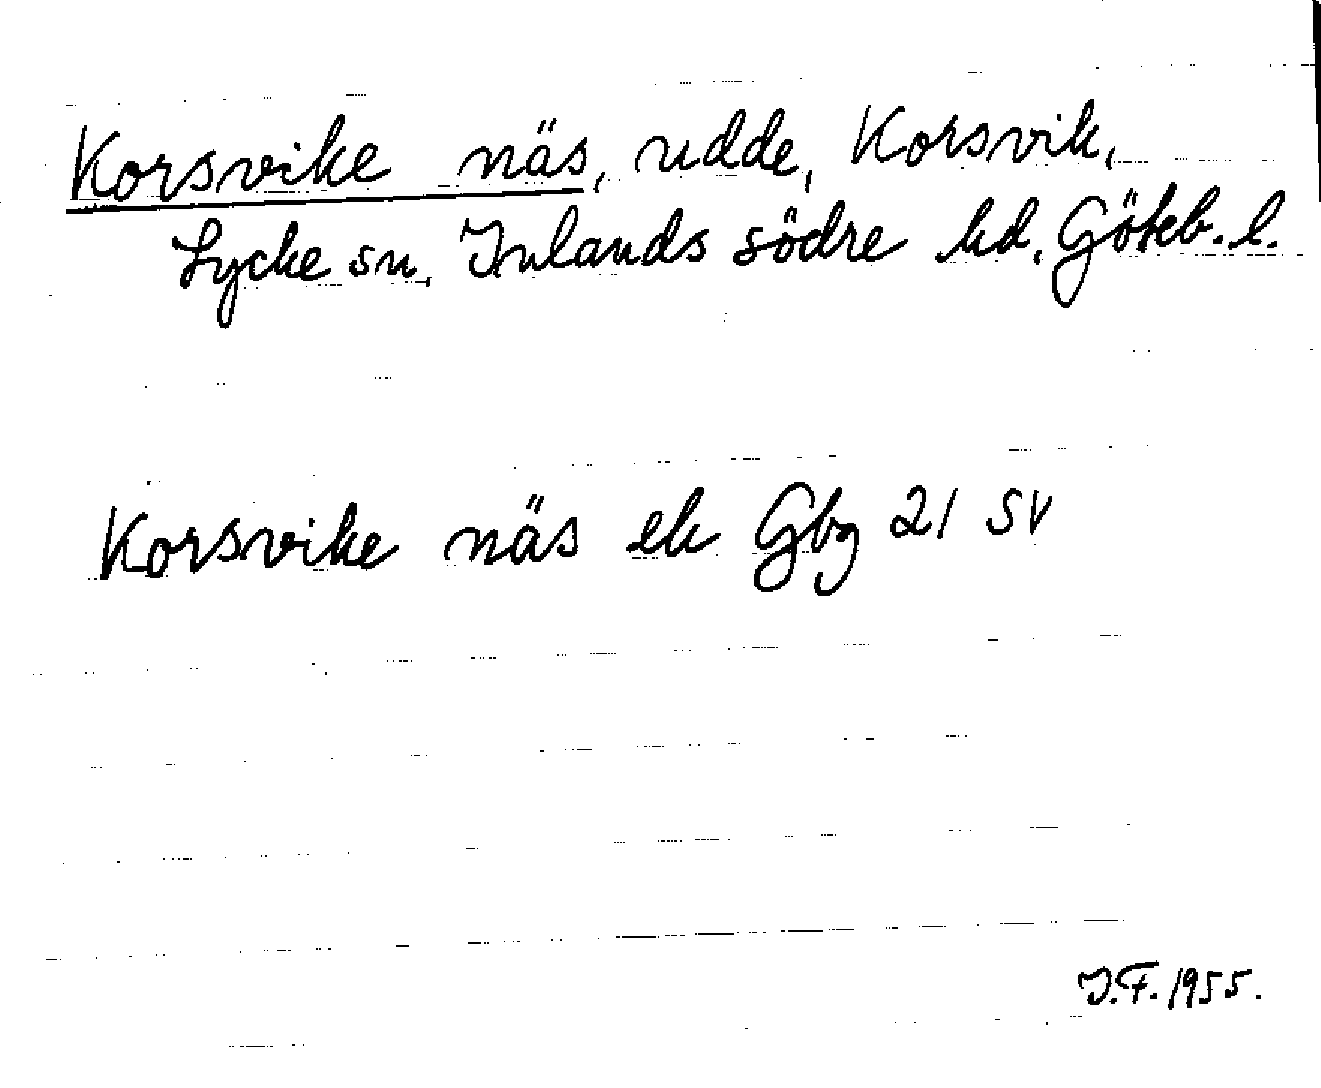 Korsvike näs, udde, Korsvik,
Lycke sn, Inlands södre hd, Göteb. l.
Korsvike näs ek Gbg 21 SV
J.F. 1955.